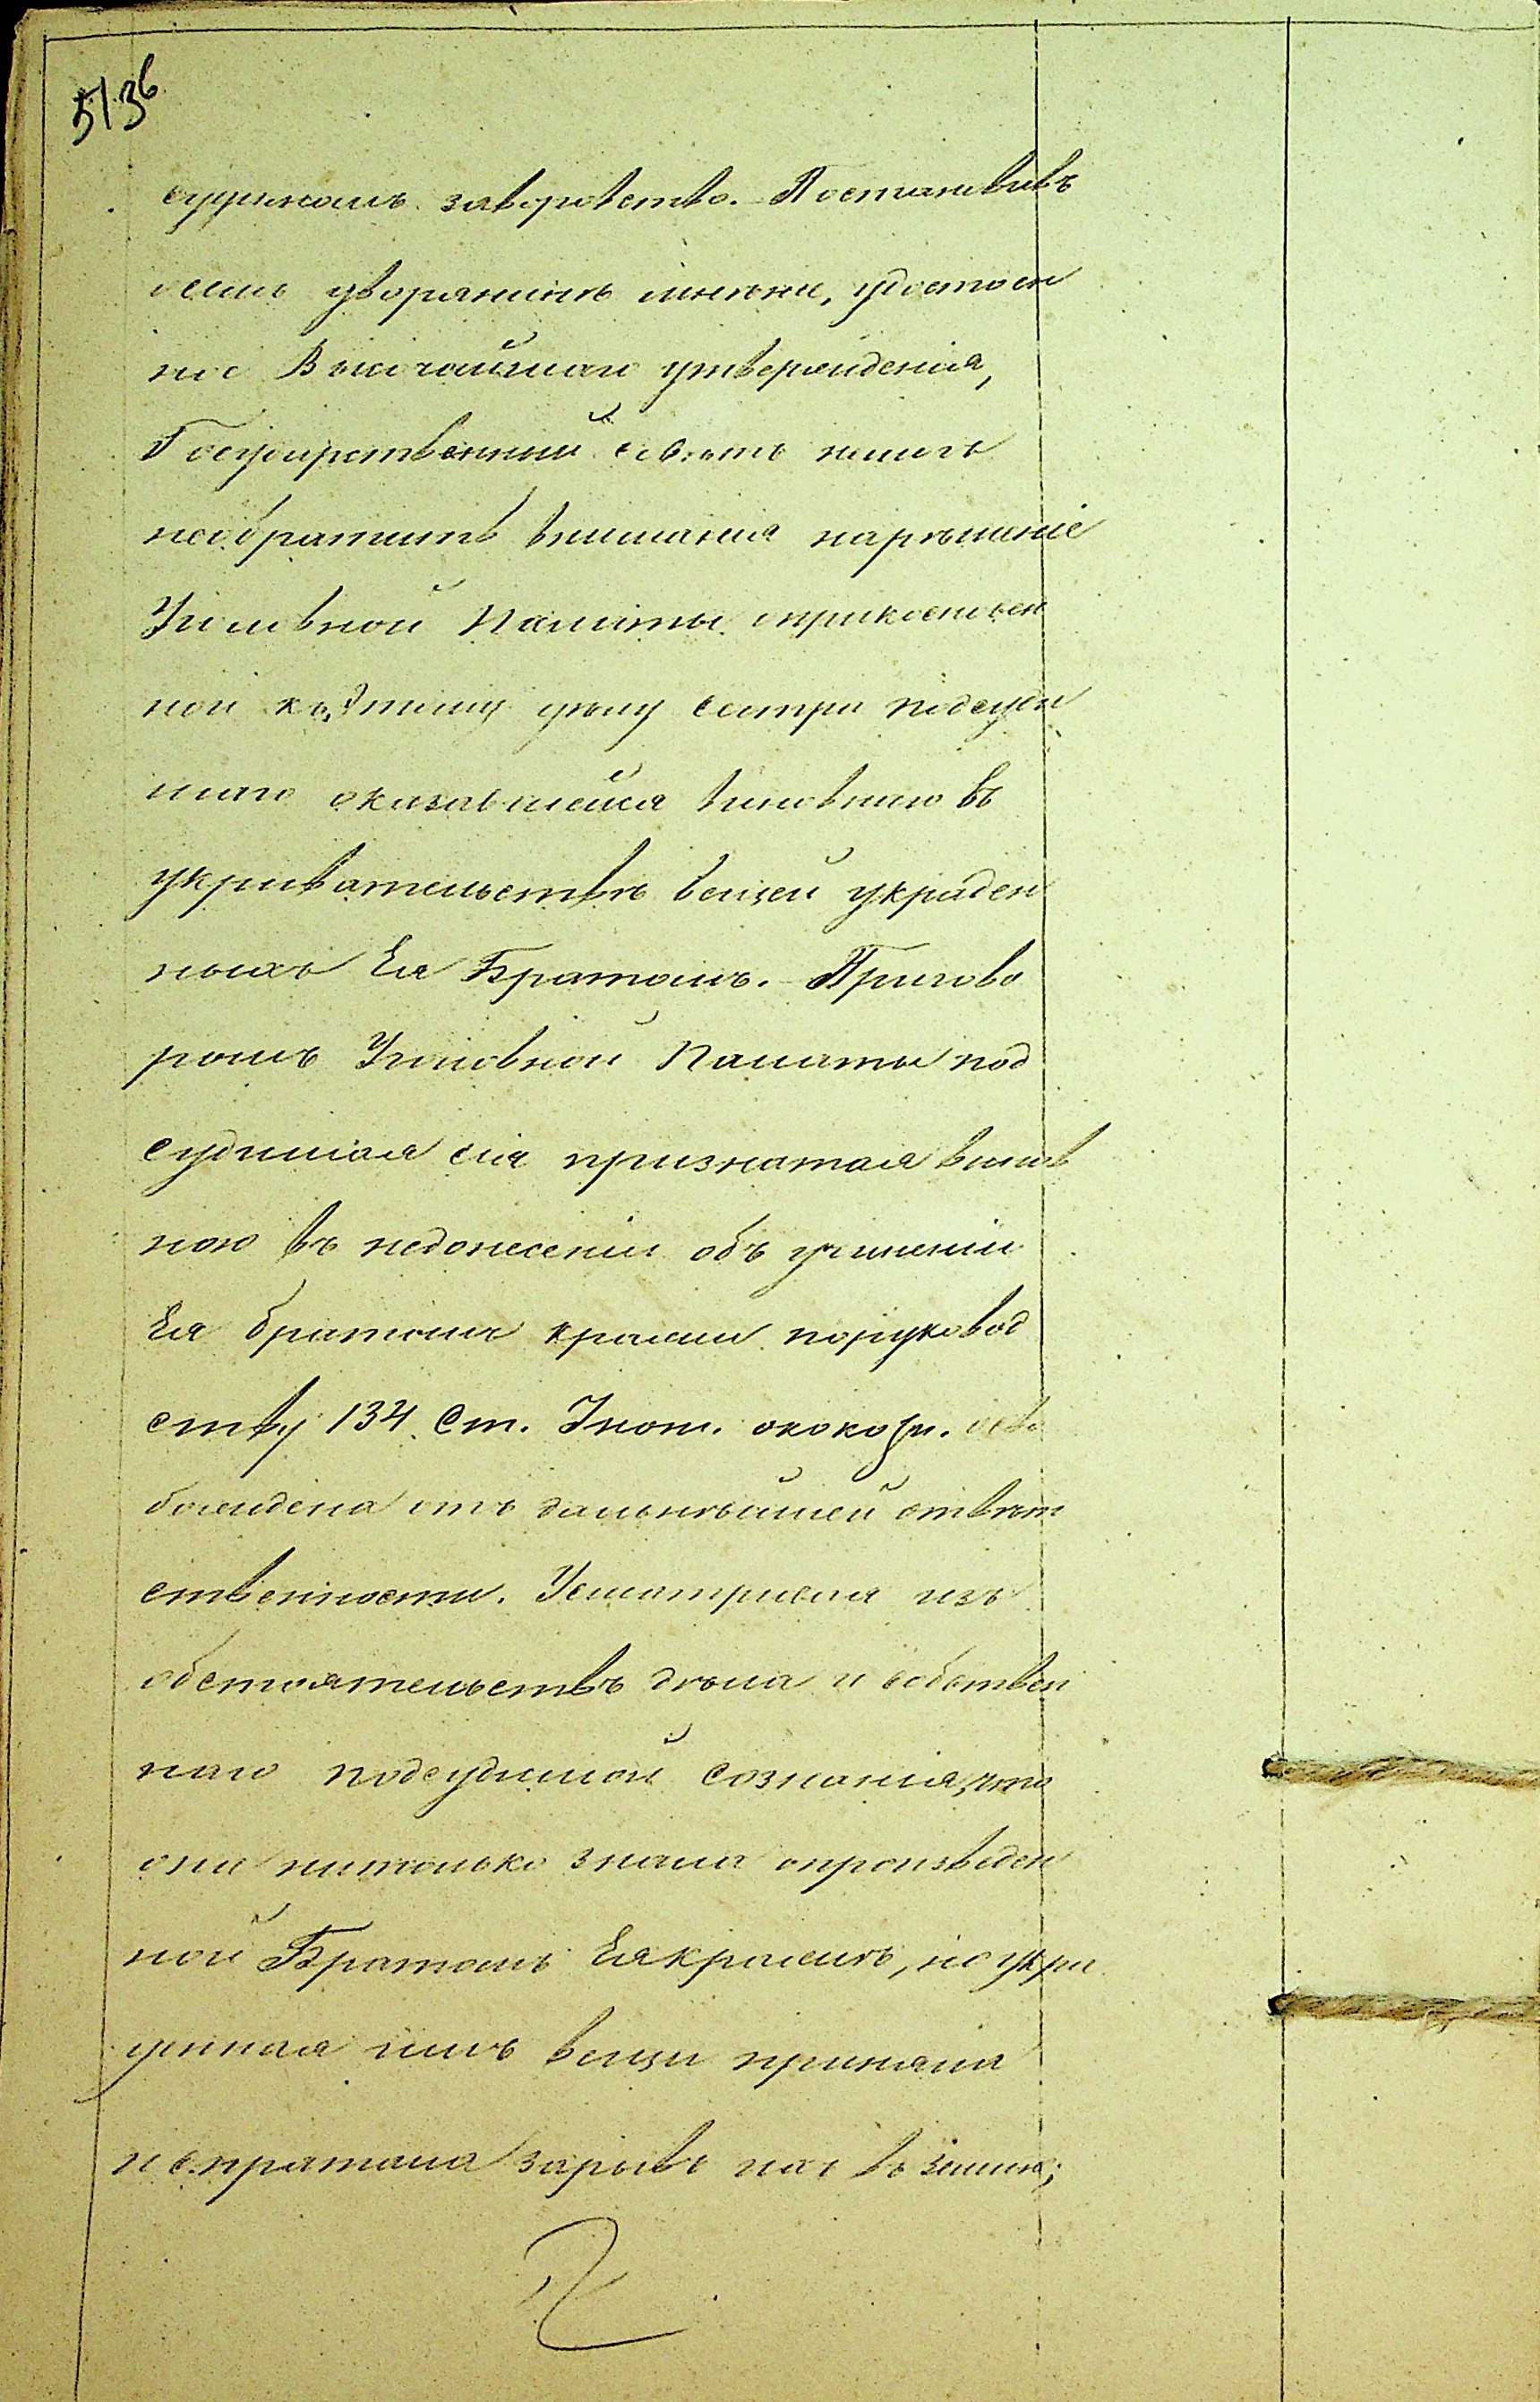 5136
суднаго заворовство. Постановивъ
осемъ дворянинѣ мненіе, удостоен
ное Высочайшаго утвержденія,
Государственный совѣтъ немогъ
необратить вниманія нарѣшеніе
Уголовной Палаты оприкосновен
ной къэтому дѣлу сестры подсуди
маго оказавшейся виновною въ
укривательствѣ вещей украден
ныхъ Ея Братомъ. Пригово
ромъ Уголовной Палаты под
судимая сія признатая винов
ною въ недонесеніи объ учиненіи
Ея братомъ кражи поруковод
ству 134 Ст. Улож. онаказ. осво
бождена отъ дальнѣйшей отвѣт
ственности. Усматривая изъ
обстоятельствъ дѣла и собствен
наго подсудимой сознанія, что
она нетолько знала опроизведен
ной Братомъ Ея кражѣ, но укра
денная имъ вещи приняла
и спратала зарывъ ихъ въ землю;